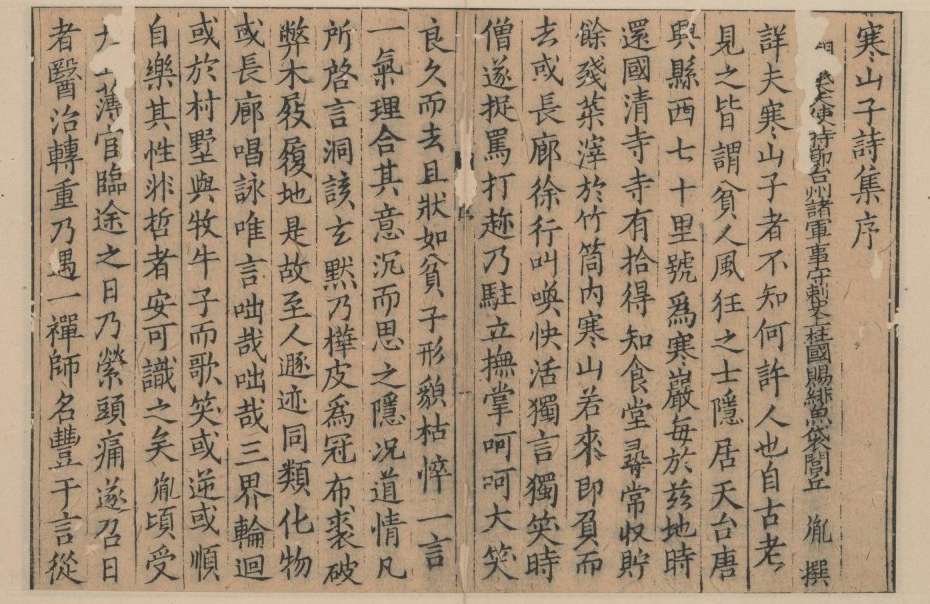 寒山子詩集序
使持節台州諸軍事守刺史上柱國賜緋魚袋閭丘 胤 撰
詳夫寒山子者不知何許人也自古老
見之皆謂貧人風狂之士隱居天台唐
興縣西七十里號爲寒巖每於茲地時
還國清寺寺有拾得知食堂尋常收貯
餘殘菜滓於竹筒内寒山若來即負而
去或長廊徐行叫喚快活獨言獨笑時
僧遂捉罵打趂乃駐立撫掌呵呵大笑
良久而去且狀如貧子形貌枯悴一言
一氣理合其意沉而思之隱况道情凡
所啓言洞該玄默乃樺皮爲冠布裘破
弊木屐履地是故至人遯迹同類化物
或長廊唱詠唯言咄哉咄哉三界輪迴
或於村墅與牧牛子而歌笑或逆或順
自樂其性非哲者安可識之矣胤頃受
薄官臨途之日乃縈頭痛遂召日
者醫治轉重乃遇一禪師名豐干言從